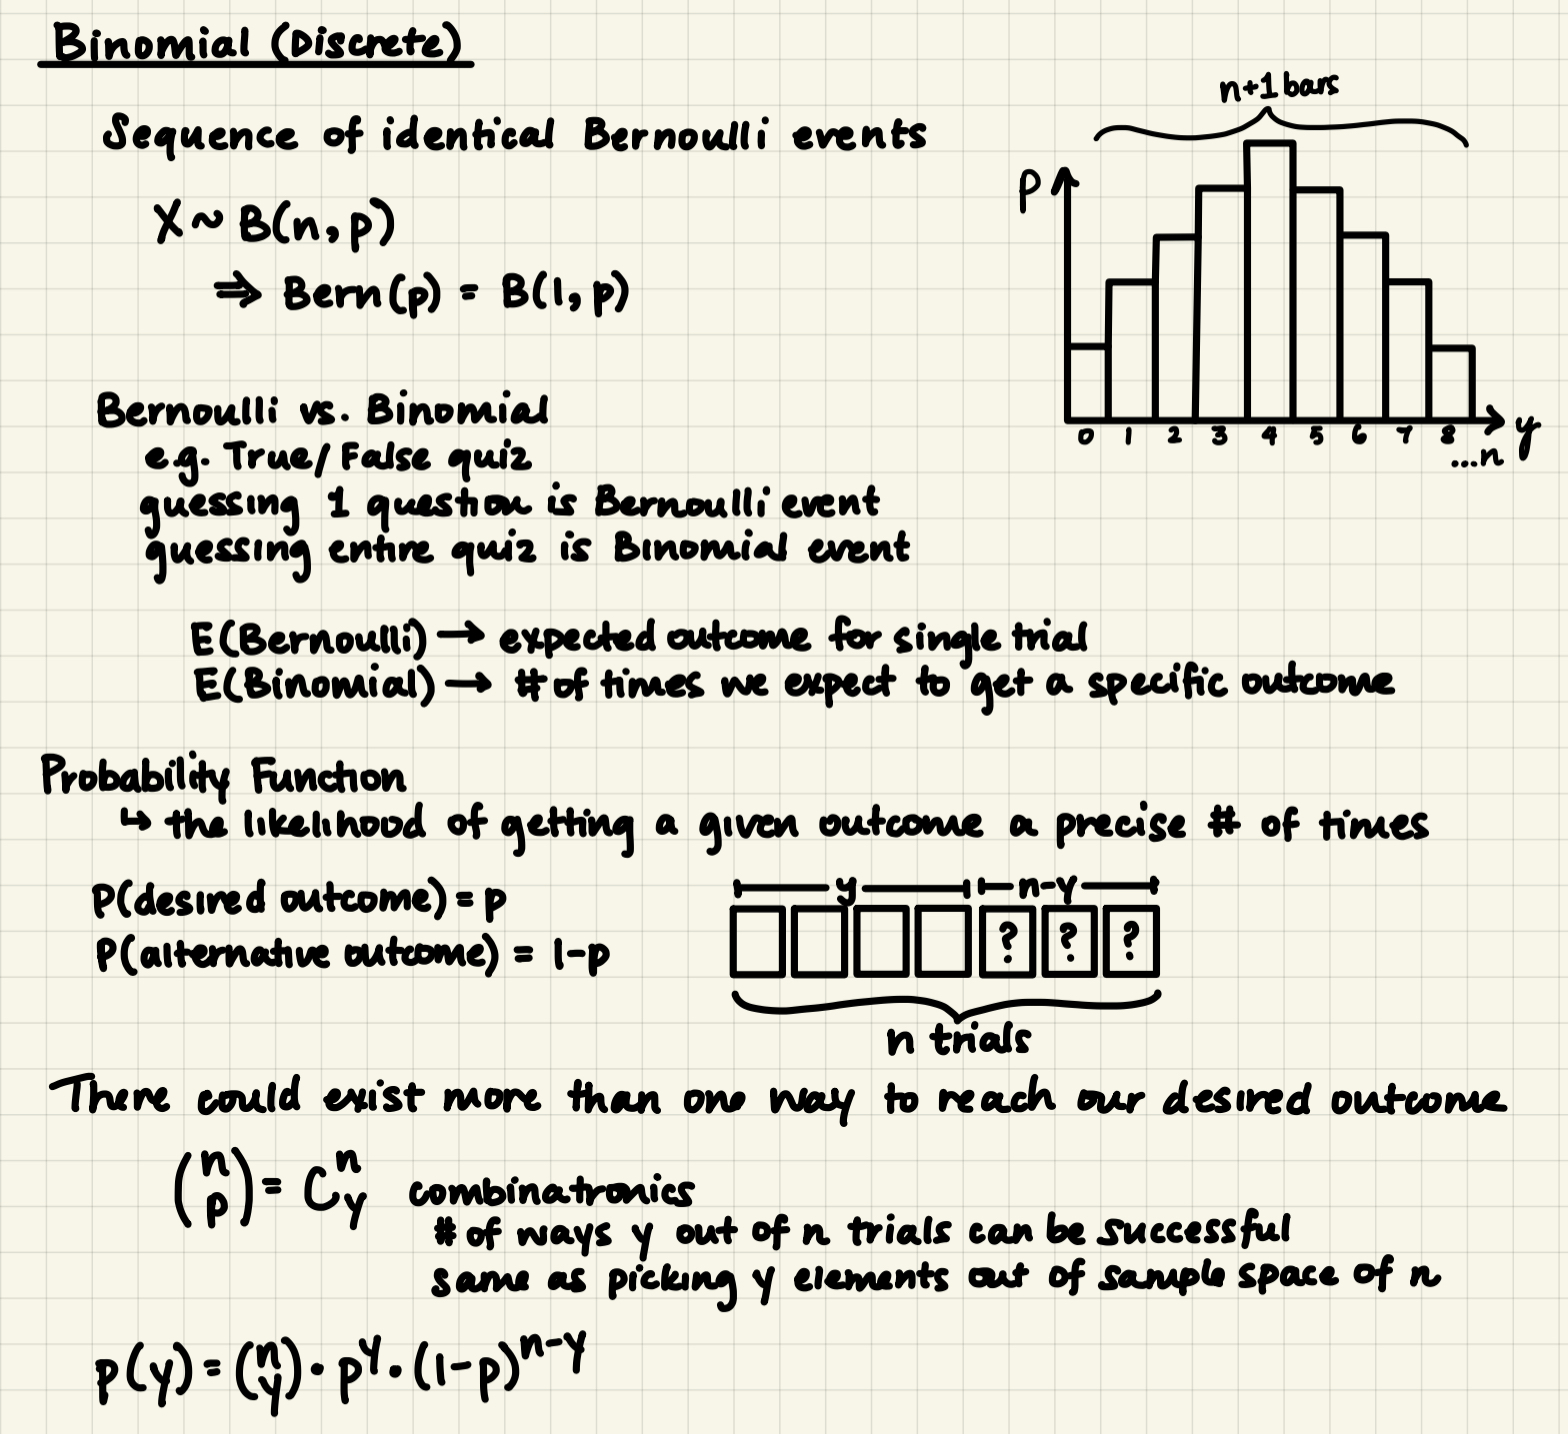 Binomial (Discrete)
Sequence of identical Bernoulli events
X ~ B(n, p)
⇒ Bern(p) = B(1, p)
n+1 bars
p
0 1 2 3 4 5 6 7 8 ...n
y
Bernoulli vs. Binomial
e.g. True/False quiz
guessing 1 question is Bernoulli event
guessing entire quiz is Binomial event
E(Bernoulli) → expected outcome for single trial
E(Binomial) → # of times we expect to get a specific outcome
Probability Function
↳ the likelihood of getting a given outcome a precise # of times
P(desired outcome) = p
P(alternative outcome) = 1-p
y n-y
? ? ?
n trials
There could exist more than one way to reach our desired outcome
(n p) = C^n_y combinatronics
# of ways y out of n trials can be successful
same as picking y elements out of sample space of n
p(y) = (n y) · p^y · (1-p)^n-y